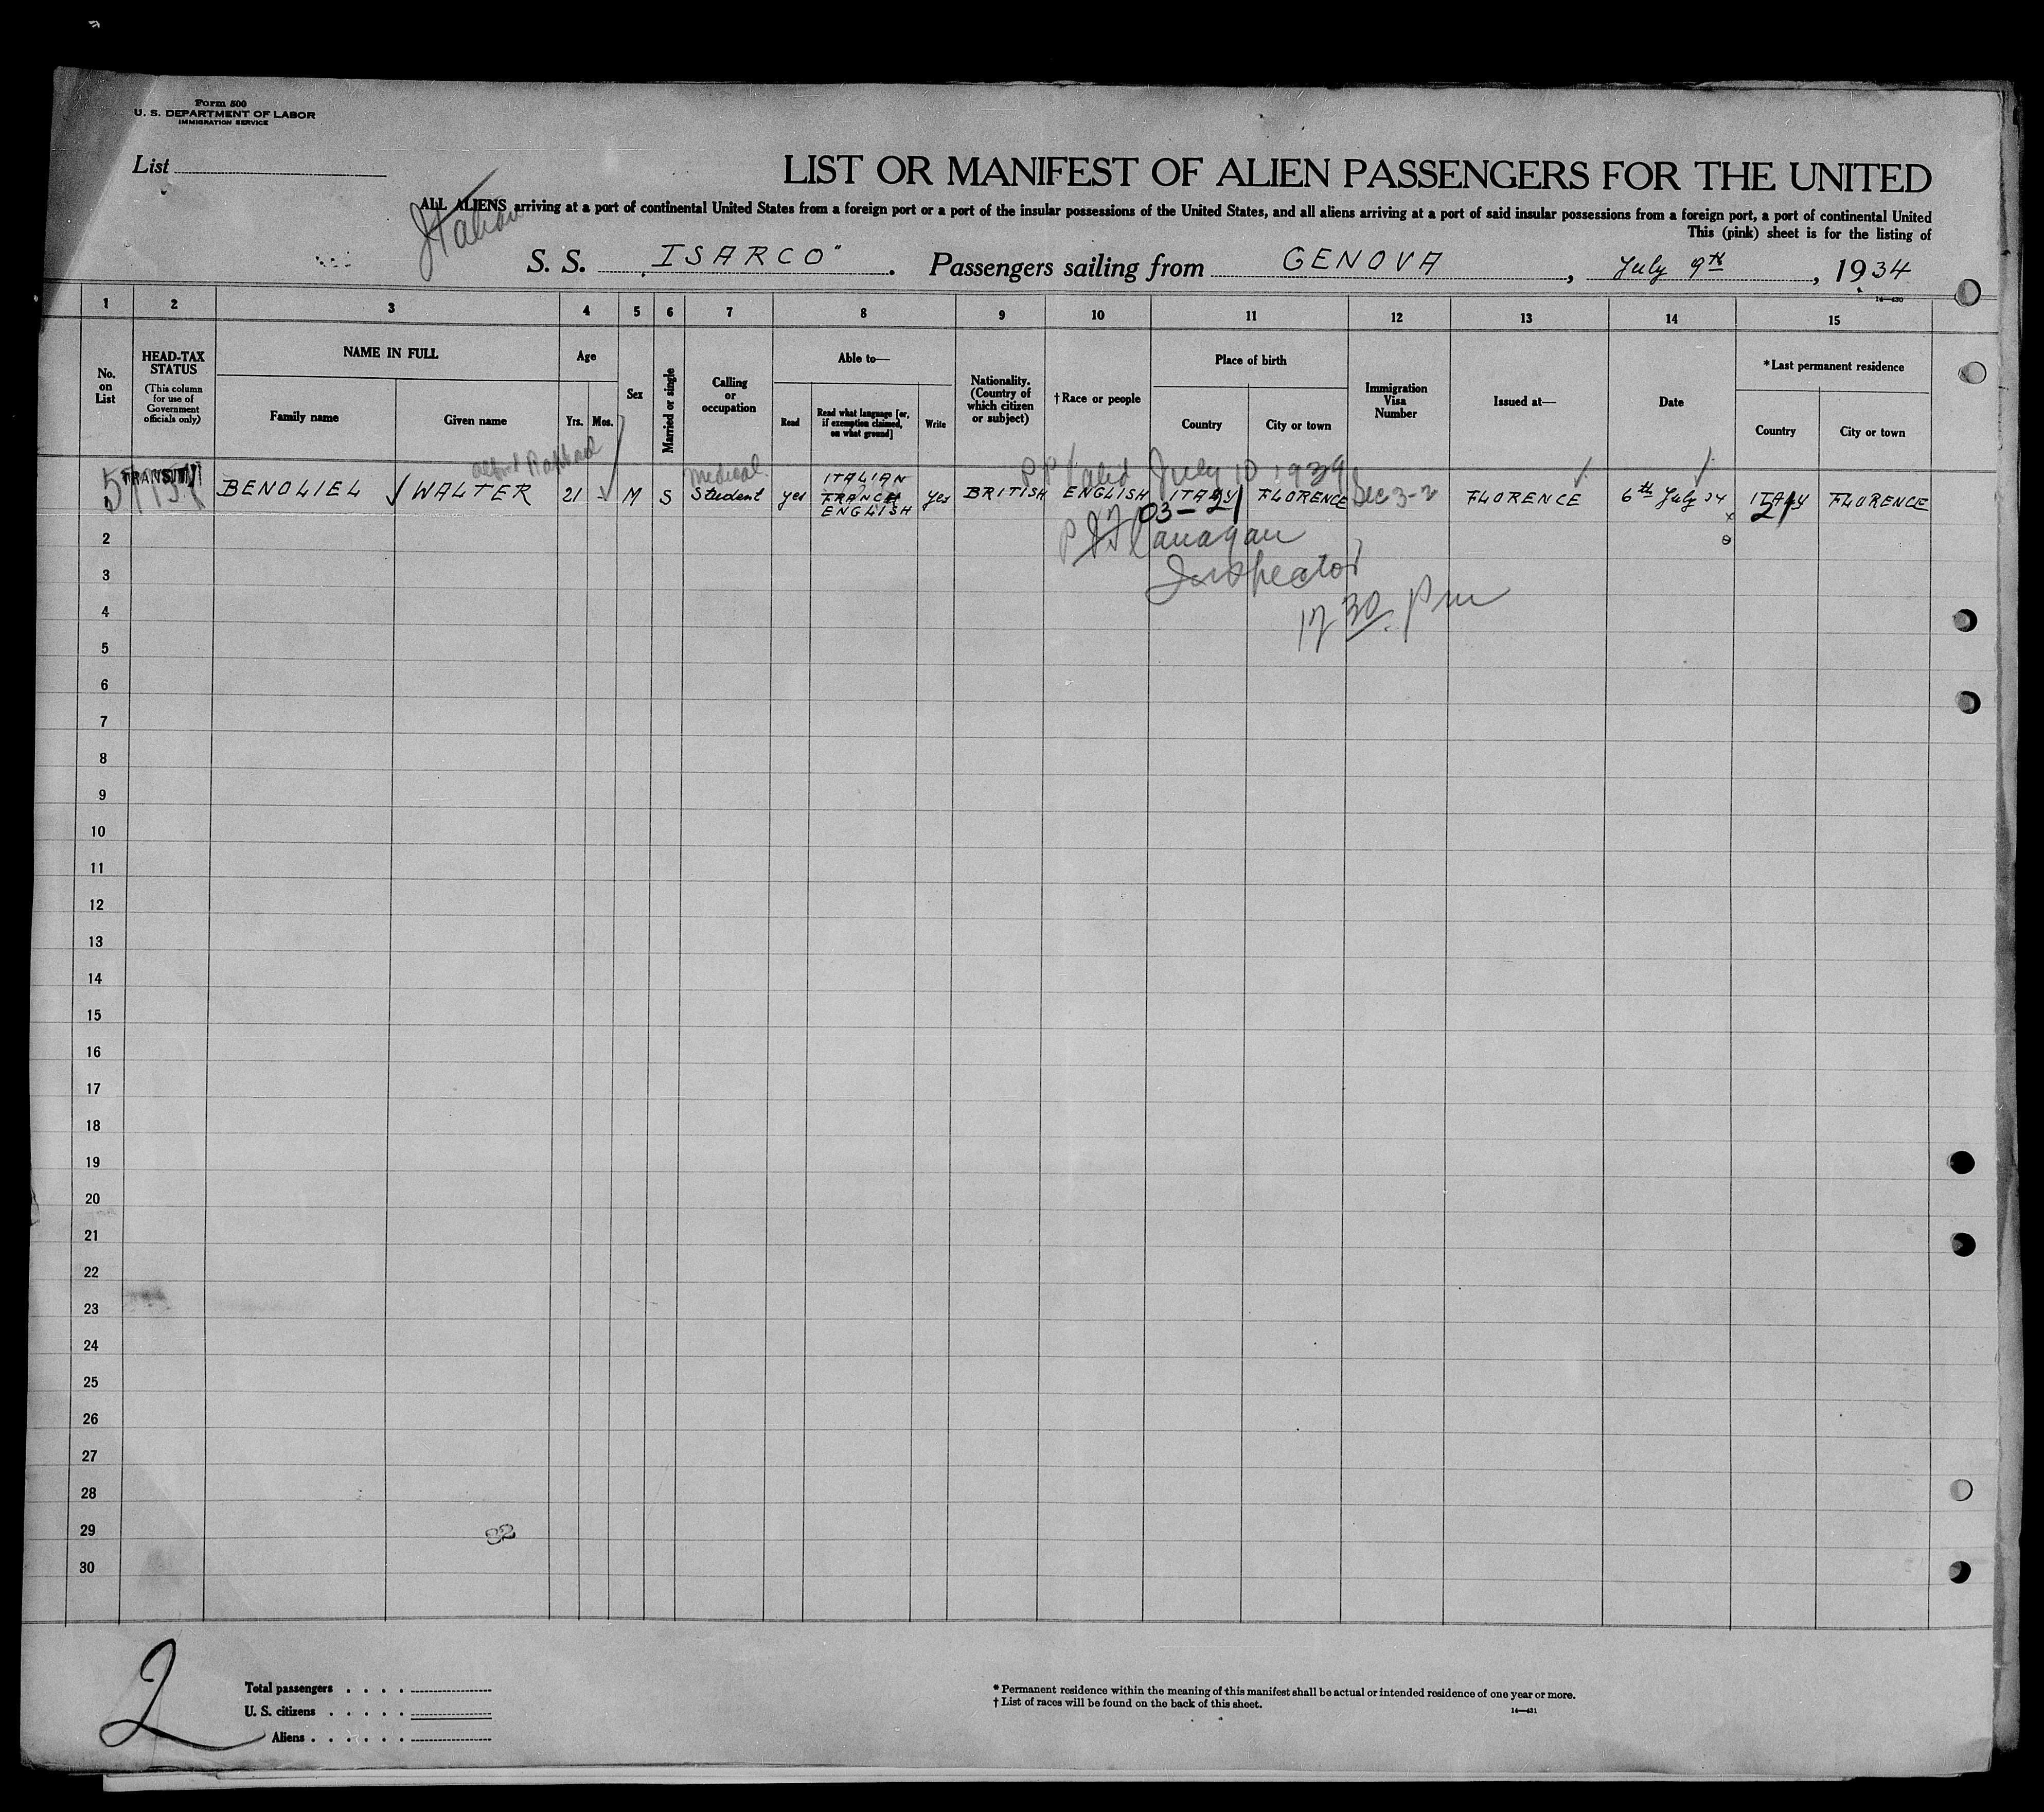 Form 500
U. S. DEPARTMENT OF LABOR
IMMIGRATION SERVICE
List
LIST OR MANIFEST OF ALIEN PASSENGERS FOR THE UNITED
Italian
ALL ALIENS arriving at a port of continental United States from a foreign port or a port of the insular possessions of the United States, and all aliens arriving at a port of said insular possessions from a foreign port, a port of continental United
This (pink) sheet is for the listing of
S. S. "ISARCO". Passengers sailing from GENOVA, July 9th, 1934
16—430
1 2 3 4 5 6 7 8 9 10 11 12 13 14 15
No. on List
HEAD-TAX STATUS
(This column for use of Government officials only)
NAME IN FULL
Family name
Given name
Age
Yrs.
Mos.
Sex
Married or single
Calling or occupation
Able to—
Read
Read what language [or, if exemption claimed, on what ground]
Write
Nationality. (Country of which citizen or subject)
†Race or people
Place of birth
Country
City or town
Immigration Visa Number
Issued at—
Date
*Last permanent residence
Country
City or town
Alfred Raphael
Medical
PP Valid July 10 1939
TRANSIT BENOLIEL WALTER 21 M S Student yes ITALIAN FRANCH ENGLISH yes BRITISH ENGLISH ITALY FLORENCE Sec 3-2 FLORENCE 6th July 34 ITALY FLORENCE
03-21
21
2
P J Flanagan
3
Inspector
4
12 30 pm
5
6
7
8
9
10
11
12
13
14
15
16
17
18
19
20
21
22
23
24
25
26
27
28
29
32
30
2
Total passengers . . . .
U. S. citizens . . . . .
Aliens . . . . . .
* Permanent residence within the meaning of this manifest shall be actual or intended residence of one year or more.
† List of races will be found on the back of this sheet.
14—431